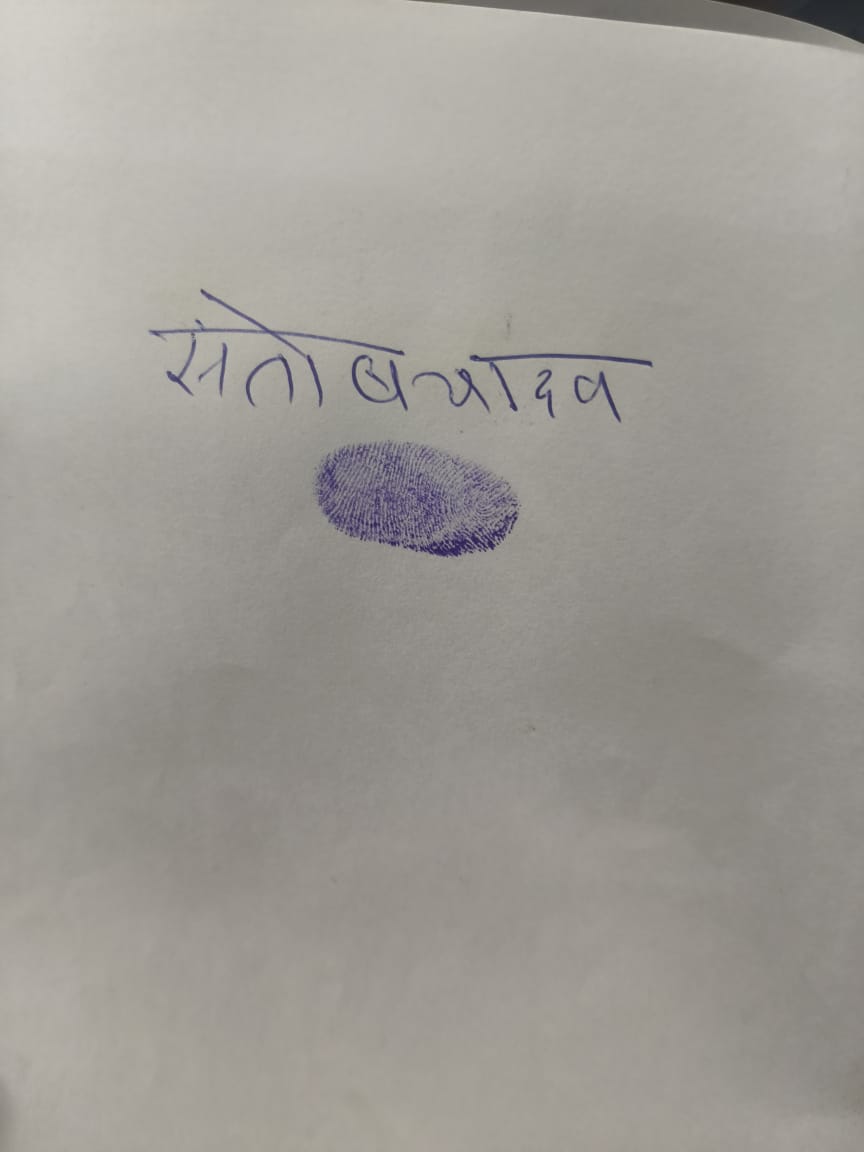 संतोष यादव